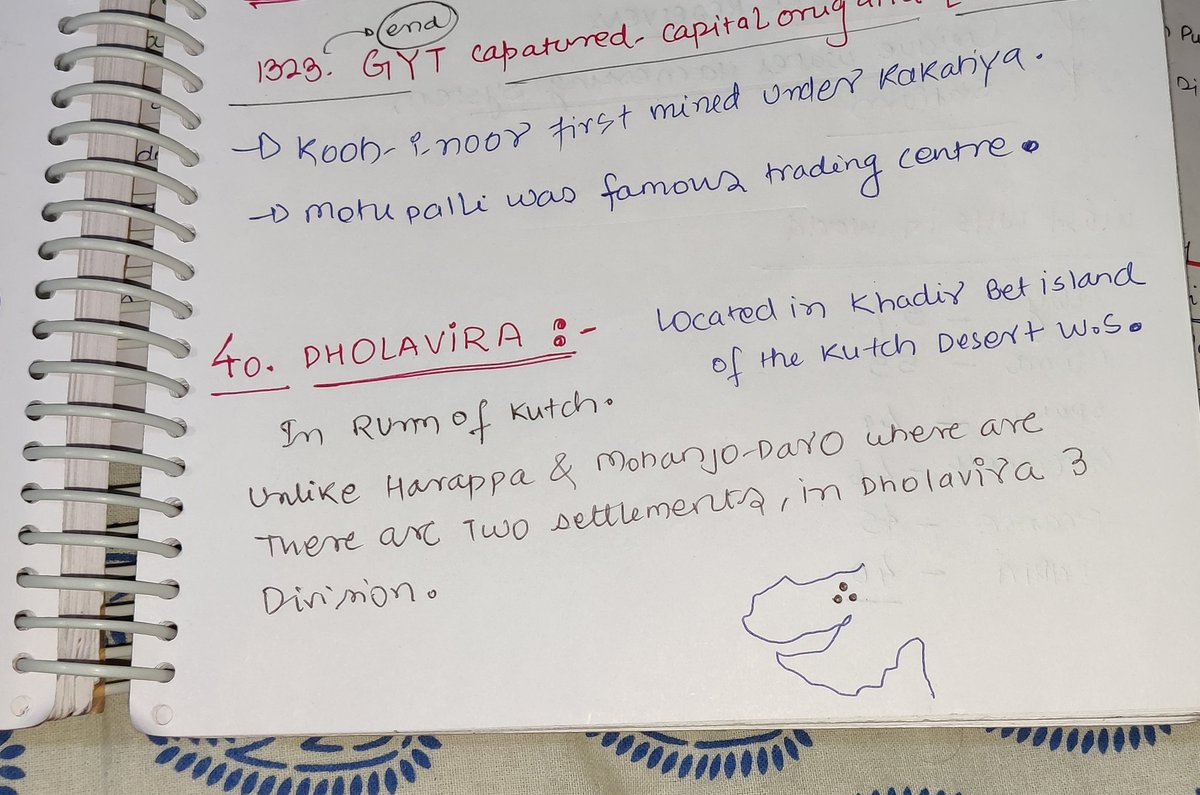 end
1323. GYT capatured capital orugan
→ Kooh-i-noor first mined under Kakatiya.
→ Motupalli was famous trading centre.
40. DHOLAVIRA :-
Located in Khadir Bet island
of the Kutch Desert W.S.
In Runn of Kutch.
Unlike Harappa & Mohanjo-Daro where are
There are Two settlements, in Dholavira 3
Division.
Pu